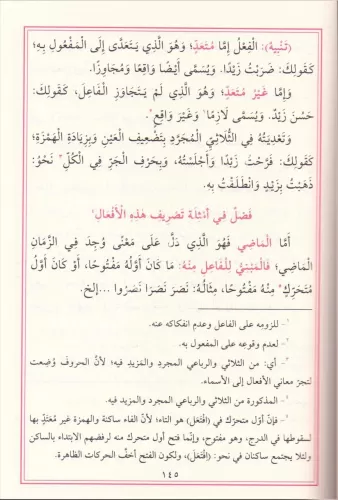 (تَنْبِيهٌ): الْفِعْلُ إِمَّا مُتَعَدٍّ؛ وَهُوَ الَّذِي يَتَعَدَّى إِلَى الْمَفْعُولِ بِهِ؛
كَقَوْلِكَ: ضَرَبْتُ زَيْدًا. وَيُسَمَّى أَيْضًا وَاقِعًا وَمُجَاوِزًا.
وَإِمَّا غَيْرُ مُتَعَدٍّ؛ وَهُوَ الَّذِي لَمْ يَتَجَاوَزِ الْفَاعِلَ، كَقَوْلِكَ:
حَسُنَ زَيْدٌ. وَيُسَمَّى لَازِمًا١ وَغَيْرَ وَاقِعٍ٢.
وَتَعْدِيَتُهُ فِي الثُّلَاثِيِّ الْمُجَرَّدِ بِتَضْعِيفِ الْعَيْنِ وَبِزِيَادَةِ الْهَمْزَةِ؛
كَقَوْلِكَ: فَرَّحْتُ زَيْدًا وَأَجْلَسْتُهُ، وَبِحَرْفِ الْجَرِّ فِي الْكُلِّ٣ نَحْوُ:
ذَهَبْتُ بِزَيْدٍ وَانْطَلَقْتُ بِهِ.
فَصْلٌ فِي أَمْثِلَةِ تَصْرِيفِ هَذِهِ الْأَفْعَالِ٤
أَمَّا الْمَاضِي فَهُوَ الَّذِي دَلَّ عَلَى مَعْنًى وُجِدَ فِي الزَّمَانِ
الْمَاضِي؛ فَالْمَبْنِيُّ لِلْفَاعِلِ مِنْهُ: مَا كَانَ أَوَّلُهُ مَفْتُوحًا، أَوْ كَانَ أَوَّلُ
مُتَحَرِّكٍ٥ مِنْهُ مَفْتُوحًا، مِثَالُهُ: نَصَرَ نَصَرَا نَصَرُوا ...إلخ.
١- للزومه على الفاعل وعدم انفكاكه عنه.
٢- لعدم وقوعه على المفعول به.
٣- أي: من الثلاثي والرباعي المجرد والمزيد فيه؛ لأنّ الحروف وُضِعت
لتجرّ معاني الأفعال إلى الأسماء.
٤- المذكورة من الثلاثي والرباعي المجرد والمزيد فيه.
٥- فإنّ أوّل متحرّك في (افْتَعَلَ) هو التاء؛ لأنّ الفاء ساكنة والهمزة غير مُعْتَدٍّ بها
لسقوطها في الدرج، وهو مفتوح، وإنّما فتح أول متحرك منه لرفضهم الابتداء بالساكن
ولئلا يجتمع ساكنان في نحو: (افْتَعَلَ)، ولكون الفتح أخفّ الحركات الظاهرة.
١٤٥